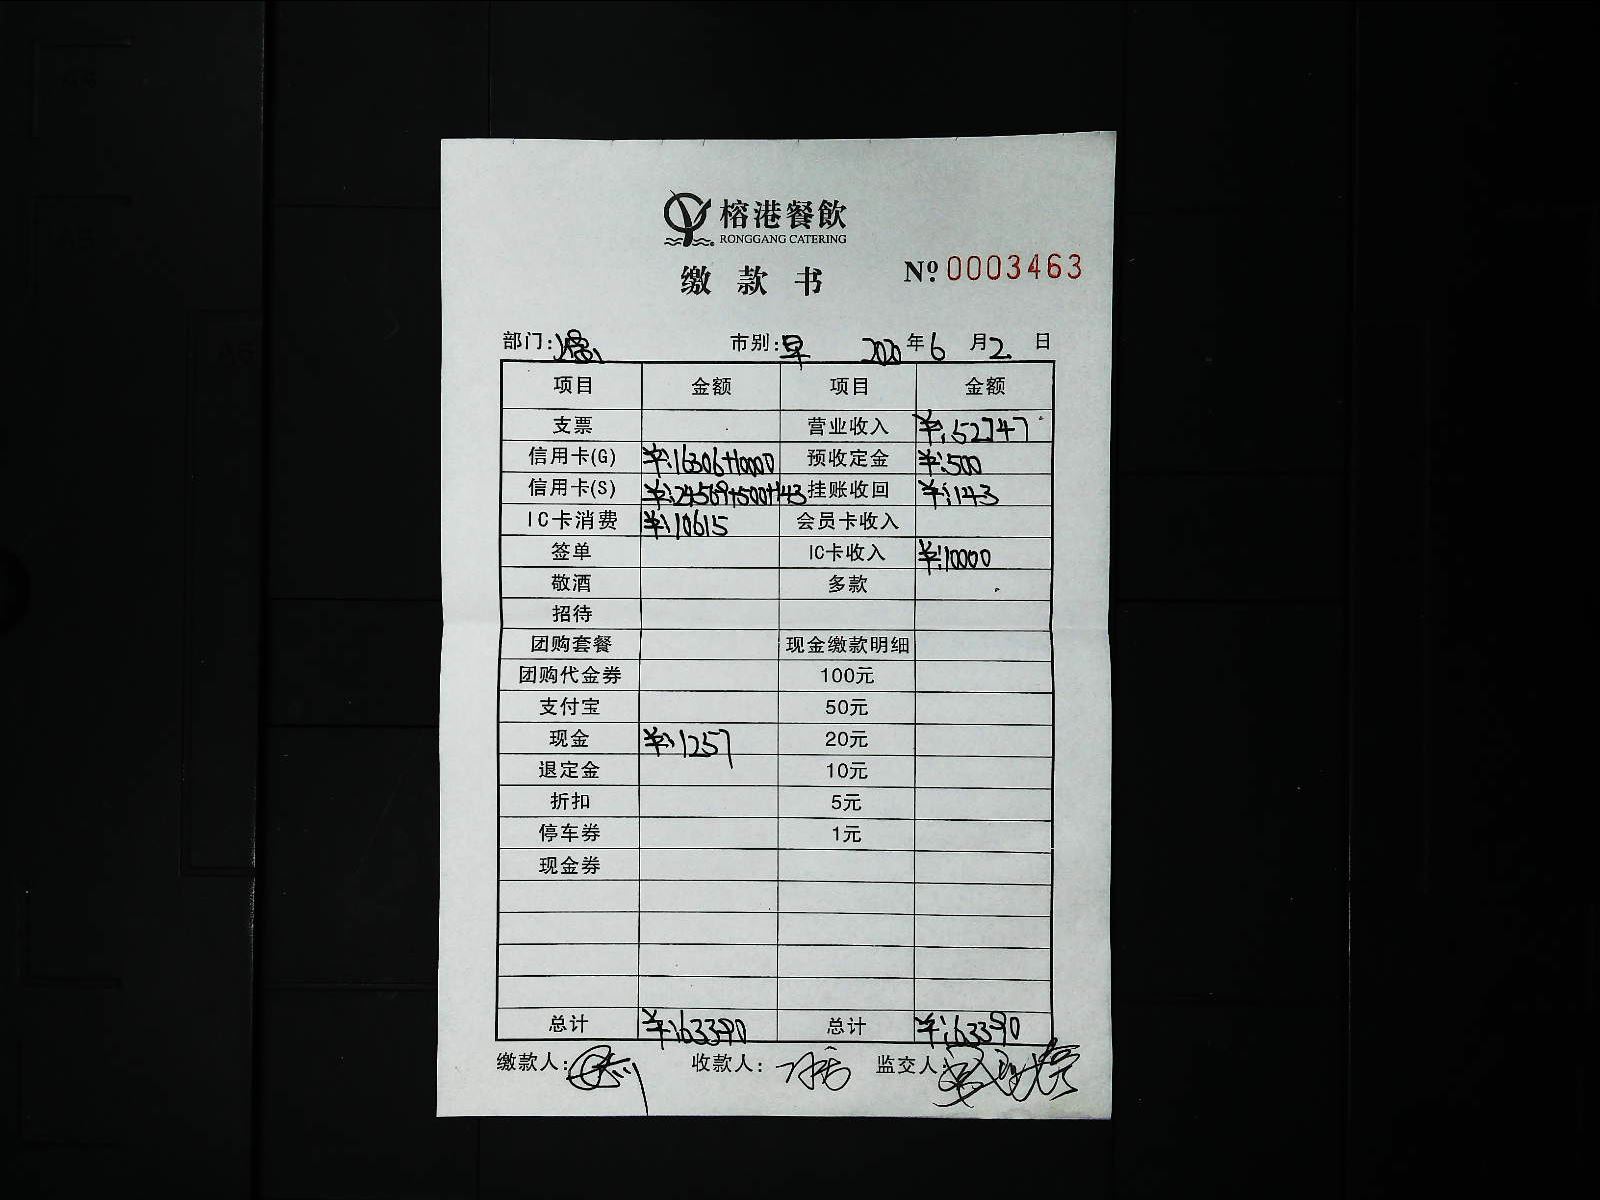 榕港餐飲
RONGGANG CATERING
缴款书 Nº 0003463
部门: 市别:早 2020年6月2日
项目 金额 项目 金额
支票 营业收入 ¥:52747
信用卡(G) ¥:16306+10000 预收定金 ¥:500
信用卡(S) ¥:24569+500+143 挂账收回 ¥:143
IC卡消费 ¥:10615 会员卡收入
签单 IC卡收入 ¥:10000
敬酒 多款
招待
团购套餐 现金缴款明细
团购代金券 100元
支付宝 50元
现金 ¥:1257 20元
退定金 10元
折扣 5元
停车券 1元
现金券
总计 ¥:63390 总计 ¥:63390
缴款人: 收款人: 监交人: